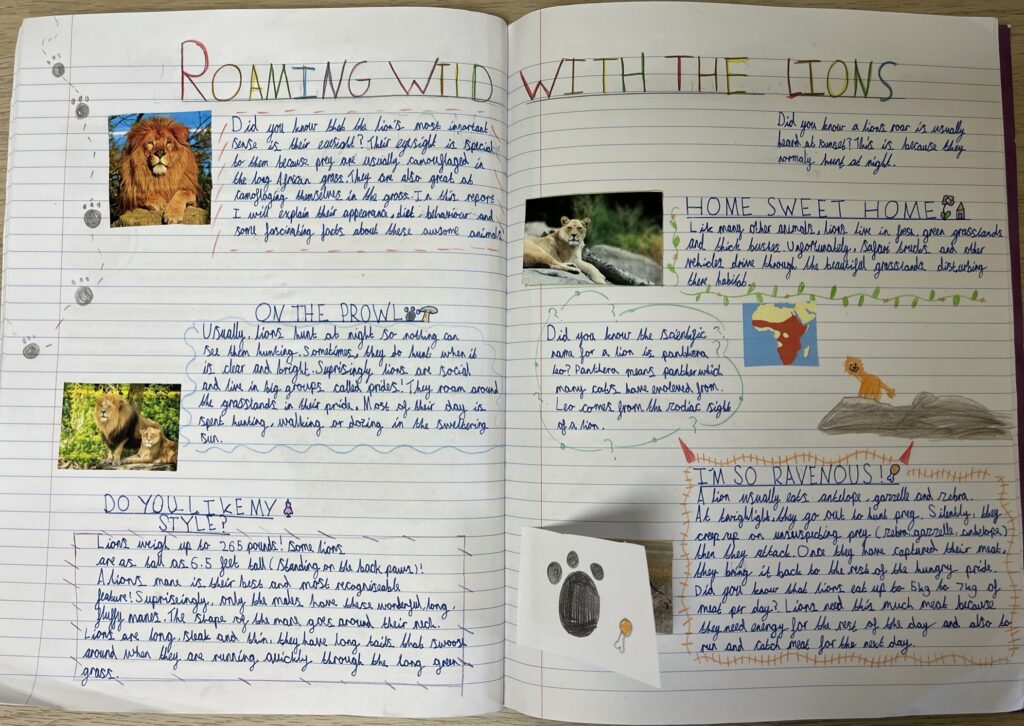 ROAMING WILD WITH THE LIONS
Did you know that the lion's most important
sense is their eyesight? Their eyesight is special
to them because prey are usually camouflaged in
the long African grass. They are also great at
camoflaging themselves in the grass. In this report
I will explain their appearance, diet, behaviour and
some fascinating facts about these awsome animals
ON THE PROWL
Usually, lions hunt at night so nothing can
see them hunting. Sometimes, they do hunt when it
is clear and bright. Suprisingly lions are social
and live in big groups called prides! They roam around
the grasslands in their pride. Most of their day is
spent hunting, walking or dozing in the sweltering
sun.
DO YOU LIKE MY
STYLE?
Lions weigh up to 265 pounds! Some lions
are as tall as 6.5 feet tall (standing on the back paws)!
A lions mane is their best and most recogniseable
feature! Suprisingly, only the males have these wonderful, long,
fluffy manes. The shape of the mane goes around their neck.
Lions are long, sleak and thin, they have long tails that swoosh
around when they are running quickly through the long green
grass.
Did you know a lions roar is usually
heard at sunset? This is because they
normaly hunt at night.
HOME SWEET HOME
Like many other animals, lions live in fresh, green grasslands
and thick bushes. Unfortunately, safari trucks and other
vehicles drive through the beautiful grasslands disturbing
there habitat.
Did you know the scientific
name for a lion is panthera
leo? Panthera means panther which
many cats have evoloved from.
Leo comes from the zodiac sight
of a lion.
I'M SO RAVENOUS!
A lion usually eats antelope, gazzelle and zebra.
At twighlight, they go out to hunt prey. Silently, they
creep up on unsuspecting prey (zebra, gazzelle, antelope)
then they attack. Once they have captured their meat,
they bring it back to the rest of the hungry pride.
Did you know that lions eat up to 5kg to 7kg of
meat per day? Lions need this much meat because
they need energy for the rest of the day and also to
run and catch meat for the next day.